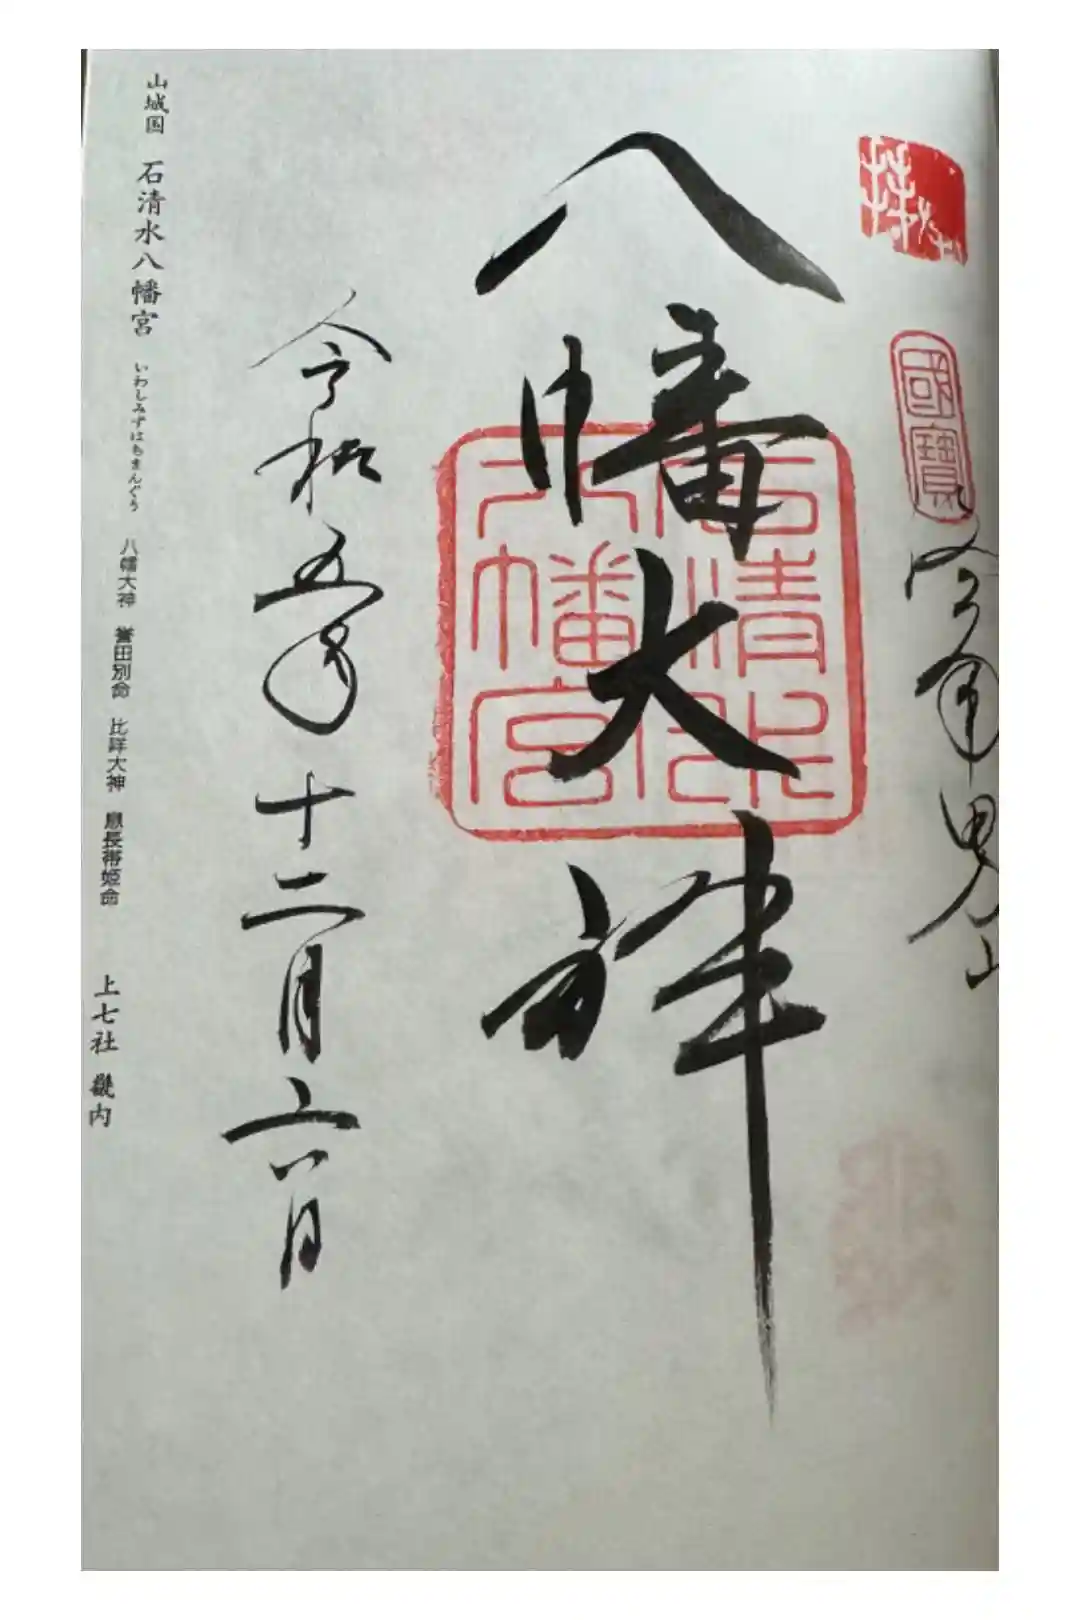 國寶
男山
八幡大神
石清水
八幡宮
令和五年十二月六日
山城国 石清水八幡宮 いわしみずはちまんぐう 八幡大神 誉田別命 比咩大神 息長帯姫命 上七社 畿内